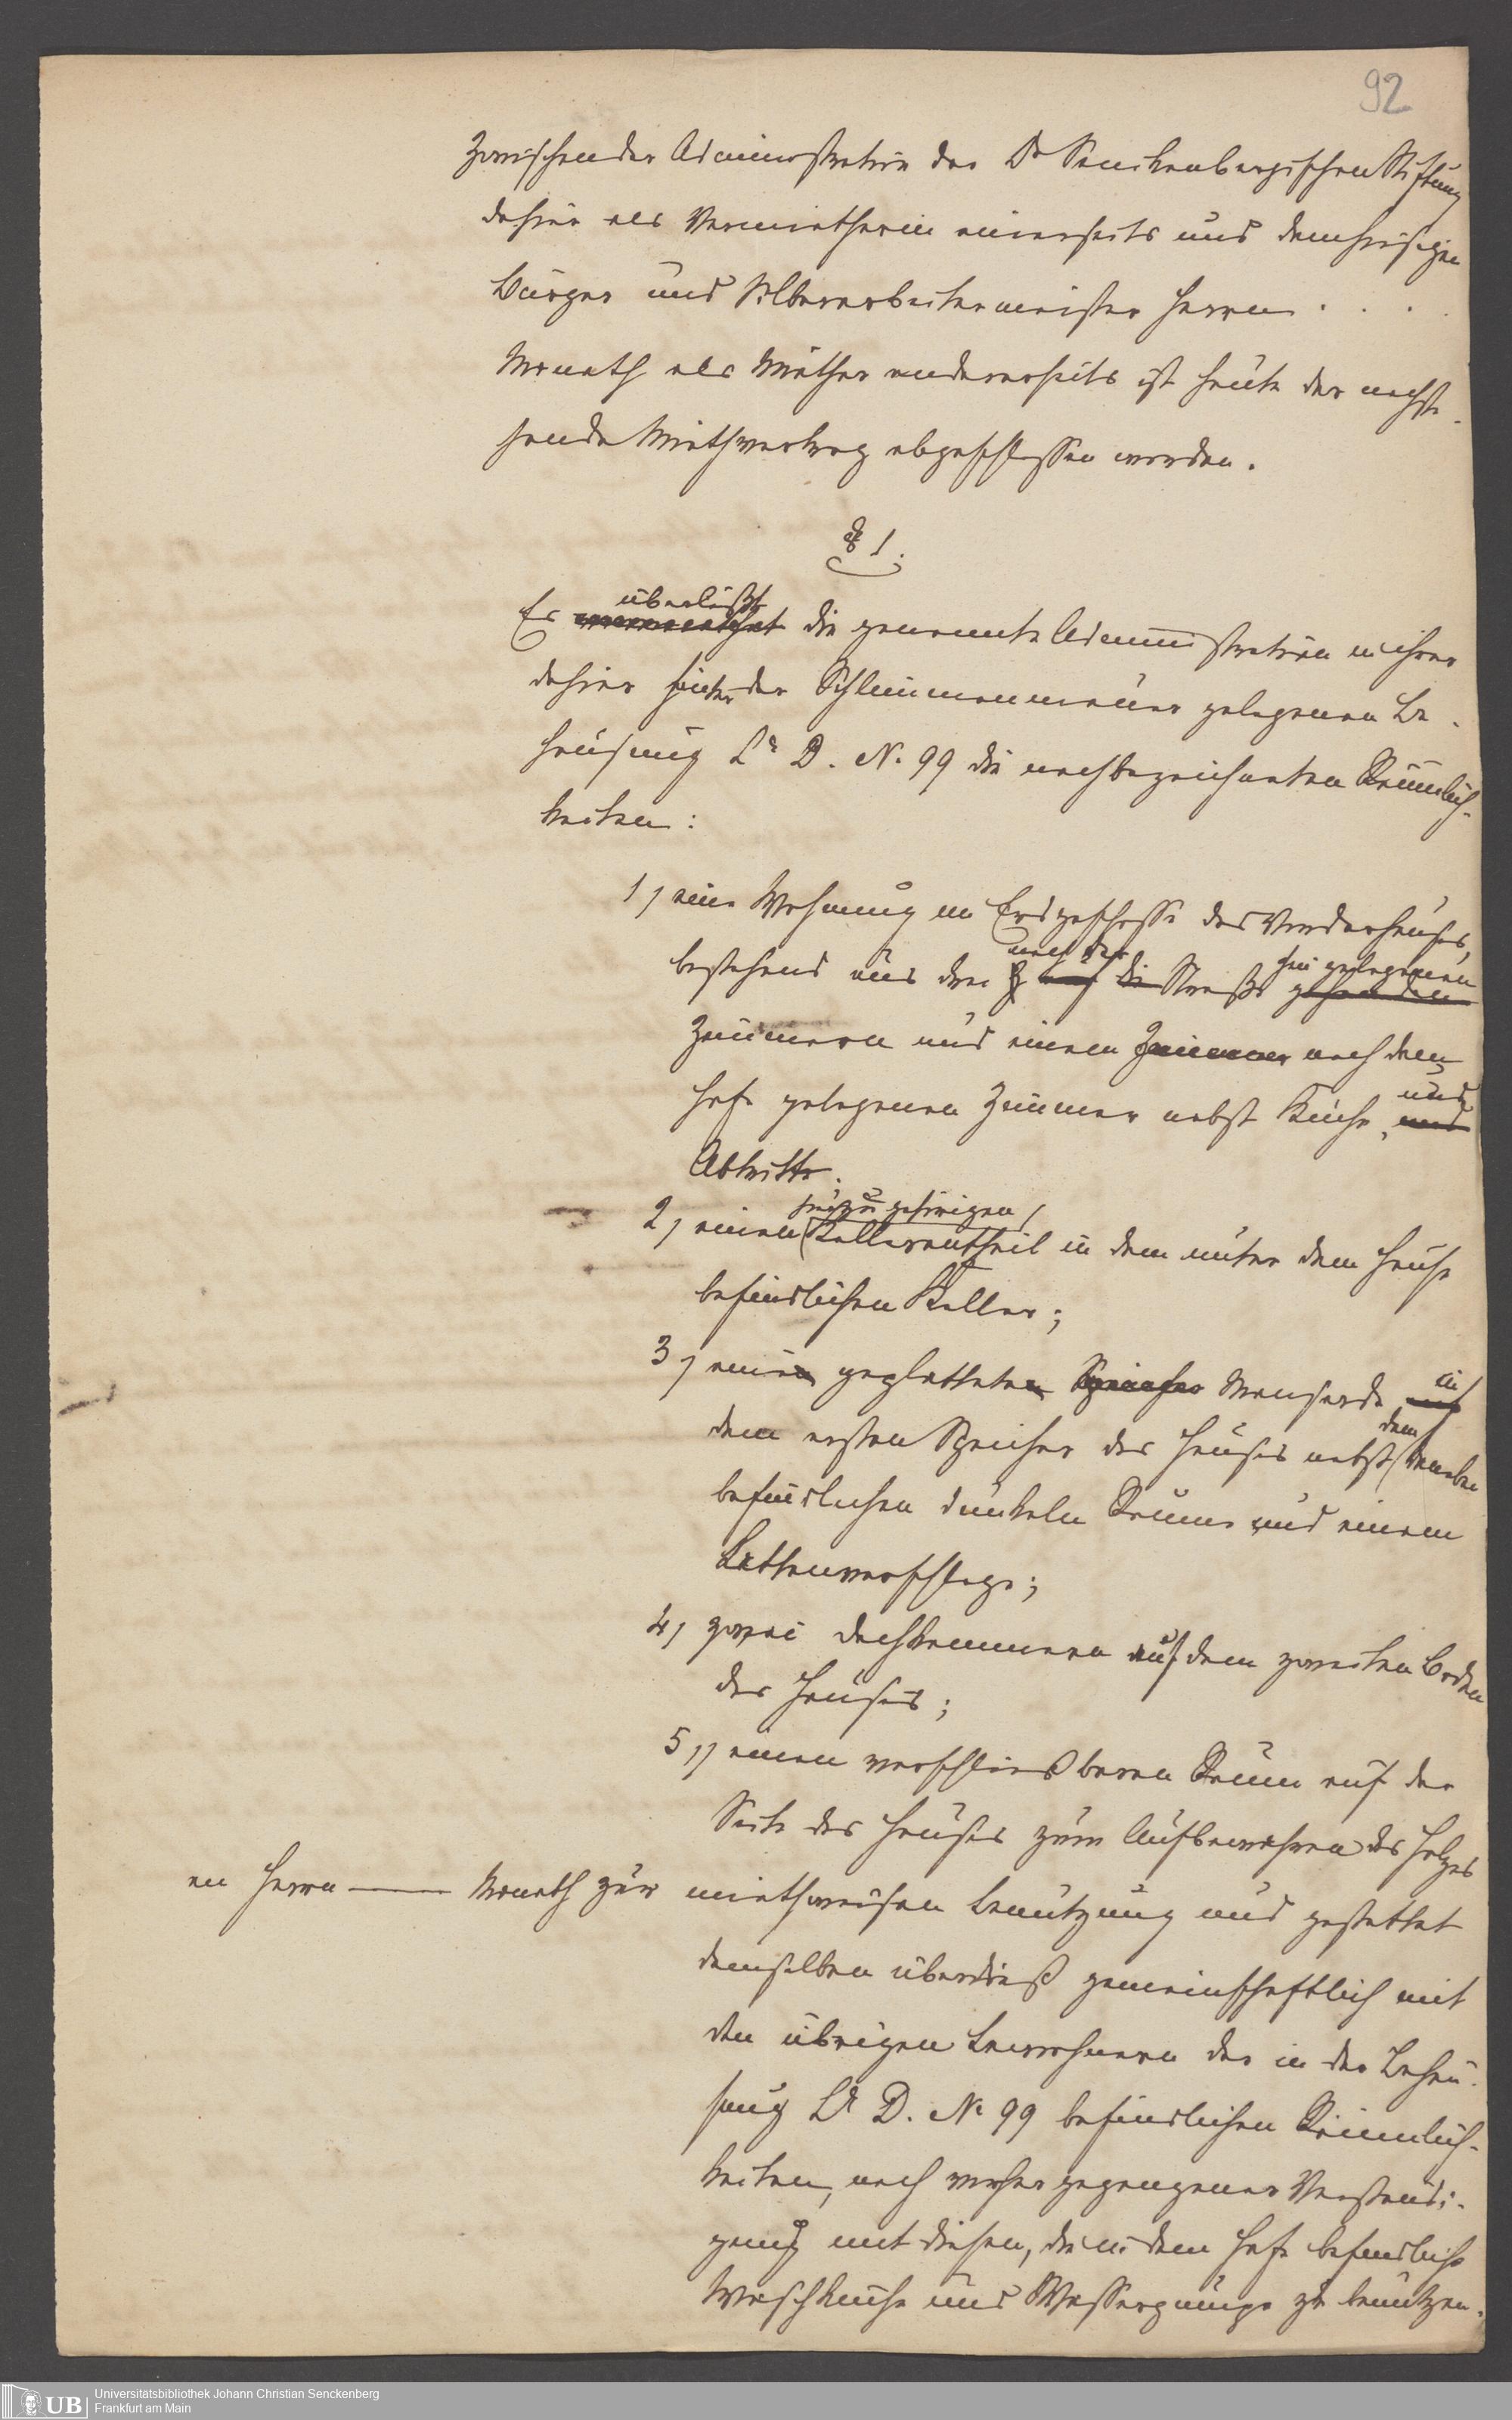 92
Zwischen der Administration der Dr Senckenbergischen Stiftung
dahier als Vermietherin einerseits und dem hiesigen
Bürger und Silberarbeitermeister Herrn . . . .
Monath als Miether andererseits ist heute der nachste-
hende Miethvertrag abgeschlossen worden.
§ 1.
überläßt
Es vermiethet die genannte Administration in ihrer
dahier hinter der Schlimmenmauer gelegenen Be-
hausung Lr D. No. 99 die nachbezeichneten Räumlich-
keiten:
1) eine Wohnung im Erdgeschosse des Vorderhauses,
nach der hin gelegenen
bestehend aus drei auf die Straße gehenden
Zimmern und einem Zimmer nach dem
Hofe gelegenen Zimmer nebst Küche, und
und
Abtritte;
hinzugehörigen
2) einen Kellerantheil in dem unter dem Hause
befindlichen Keller;
3) einen geplatteten Speicher Mansarde auf
in
dem ersten Speicher des Hauses nebst daneben
dem
befindlichen dunkeln Raume und einem
Lattenverschlage;
4) zwei Dachkammern auf dem zweiten Boden
des Hauses;
5) einen verschließbaren Raum auf der
Seite des Hauses zum Aufbewahren des Holzes
an Herrn —— Monath zur miethweisen Benutzung und gestattet
demselben überdieß gemeinschaftlich mit
den übrigen Bewohnern der in der Behau-
sung Lr D. No 99 befindlichen Räumlich-
keiten, nach vorhergegangener Verständi-
gung mit diesen, die in dem Hofe befindliche
Waschküche und Wasserpumpe zu benutzen.
UB
Universitätsbibliothek Johann Christian Senckenberg
Frankfurt am Main